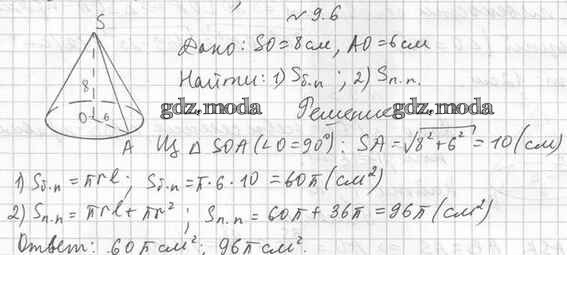 № 9.6
S
Дано: SO = 8 см, AO = 6 см
Найти: 1) Sб.п ; 2) Sп.п.
8
gdz.moda
Решение
gdz.moda
O 6
A
Из Δ SOA (∠O = 90°): SA = √8² + 6² = 10 (см)
1) Sб.п = πrl; Sб.п = π·6·10 = 60π (см²)
2) Sп.п = πrl + πr² ; Sп.п = 60π + 36π = 96π (см²)
Ответ: 60π см²; 96π см².